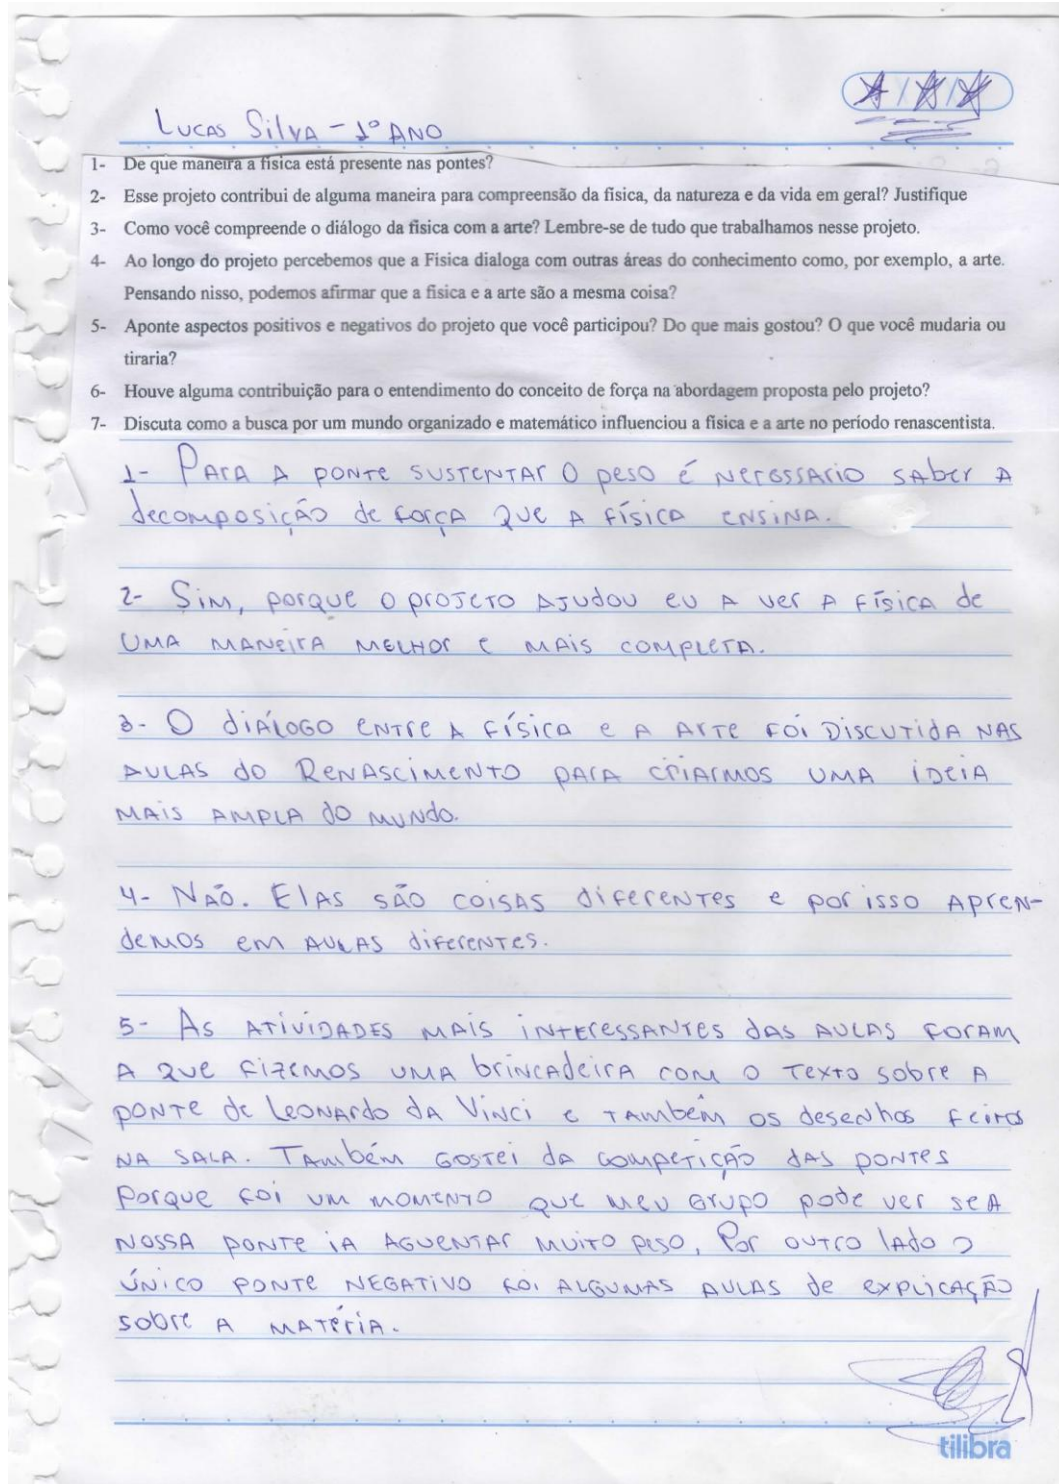 Lucas Silva - 1º ANO
1- De que maneira a física está presente nas pontes?
2- Esse projeto contribui de alguma maneira para compreensão da física, da natureza e da vida em geral? Justifique
3- Como você compreende o diálogo da física com a arte? Lembre-se de tudo que trabalhamos nesse projeto.
4- Ao longo do projeto percebemos que a Física dialoga com outras áreas do conhecimento como, por exemplo, a arte.
Pensando nisso, podemos afirmar que a física e a arte são a mesma coisa?
5- Aponte aspectos positivos e negativos do projeto que você participou? Do que mais gostou? O que você mudaria ou
tiraria?
6- Houve alguma contribuição para o entendimento do conceito de força na abordagem proposta pelo projeto?
7- Discuta como a busca por um mundo organizado e matemático influenciou a física e a arte no período renascentista.
1- Para a ponte sustentar o peso é necessario saber a
decomposição de força que a física ensina.
2- Sim, porque o projeto ajudou eu a ver a física de
uma maneira melhor e mais completa.
3- O diálogo entre a física e a arte foi discutida nas
aulas do Renascimento para criarmos uma ideia
mais ampla do mundo.
4- Não. Elas são coisas diferentes e por isso apren-
demos em aulas diferentes.
5- As atividades mais interessantes das aulas foram
a que fizemos uma brincadeira com o texto sobre a
ponte de Leonardo da Vinci e também os desenhos feitos
na sala. Também gostei da competição das pontes
porque foi um momento que meu grupo pode ver se a
nossa ponte ia aguentar muito peso, Por outro lado o
único ponte negativo foi algumas aulas de explicação
sobre a matéria.
tilibra